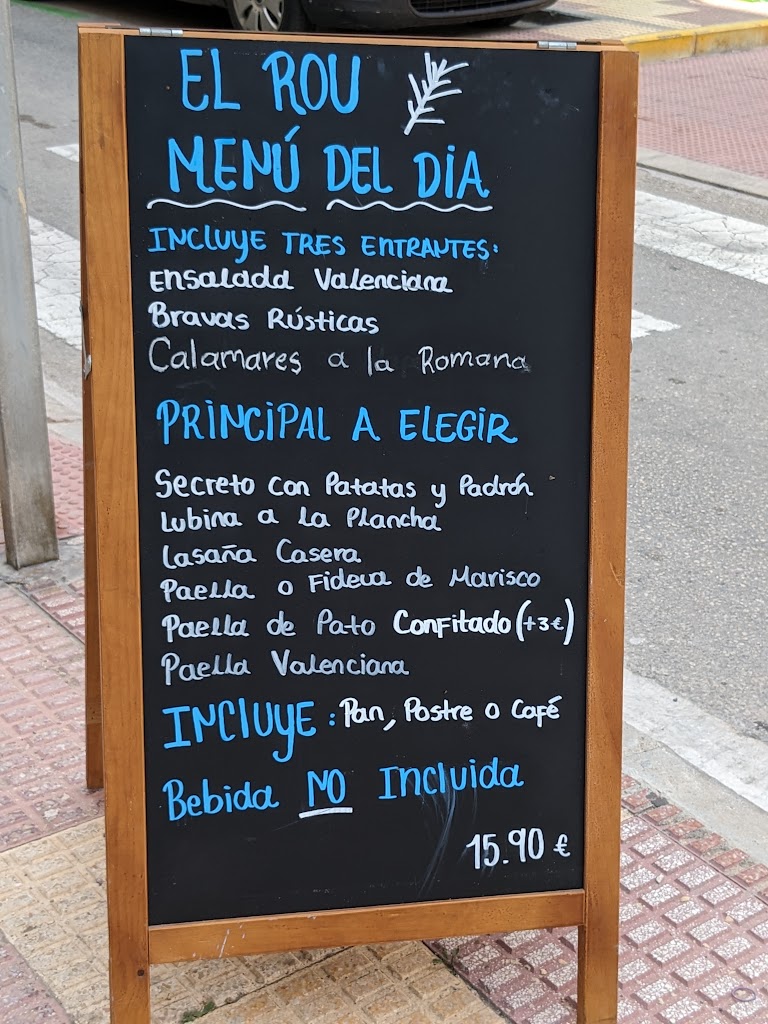 EL ROU
MENÚ DEL DIA
INCLUYE TRES ENTRANTES:
Ensalada Valenciana
Bravas Rústicas
Calamares a la Romana
PRINCIPAL A ELEGIR
Secreto con Patatas y Padrón
Lubina a la Plancha
Lasaña Casera
Paella o Fideua de Marisco
Paella de Pato Confitado (+3€)
Paella Valenciana
INCLUYE: Pan, Postre o Café
Bebida NO Incluida
15.90 €